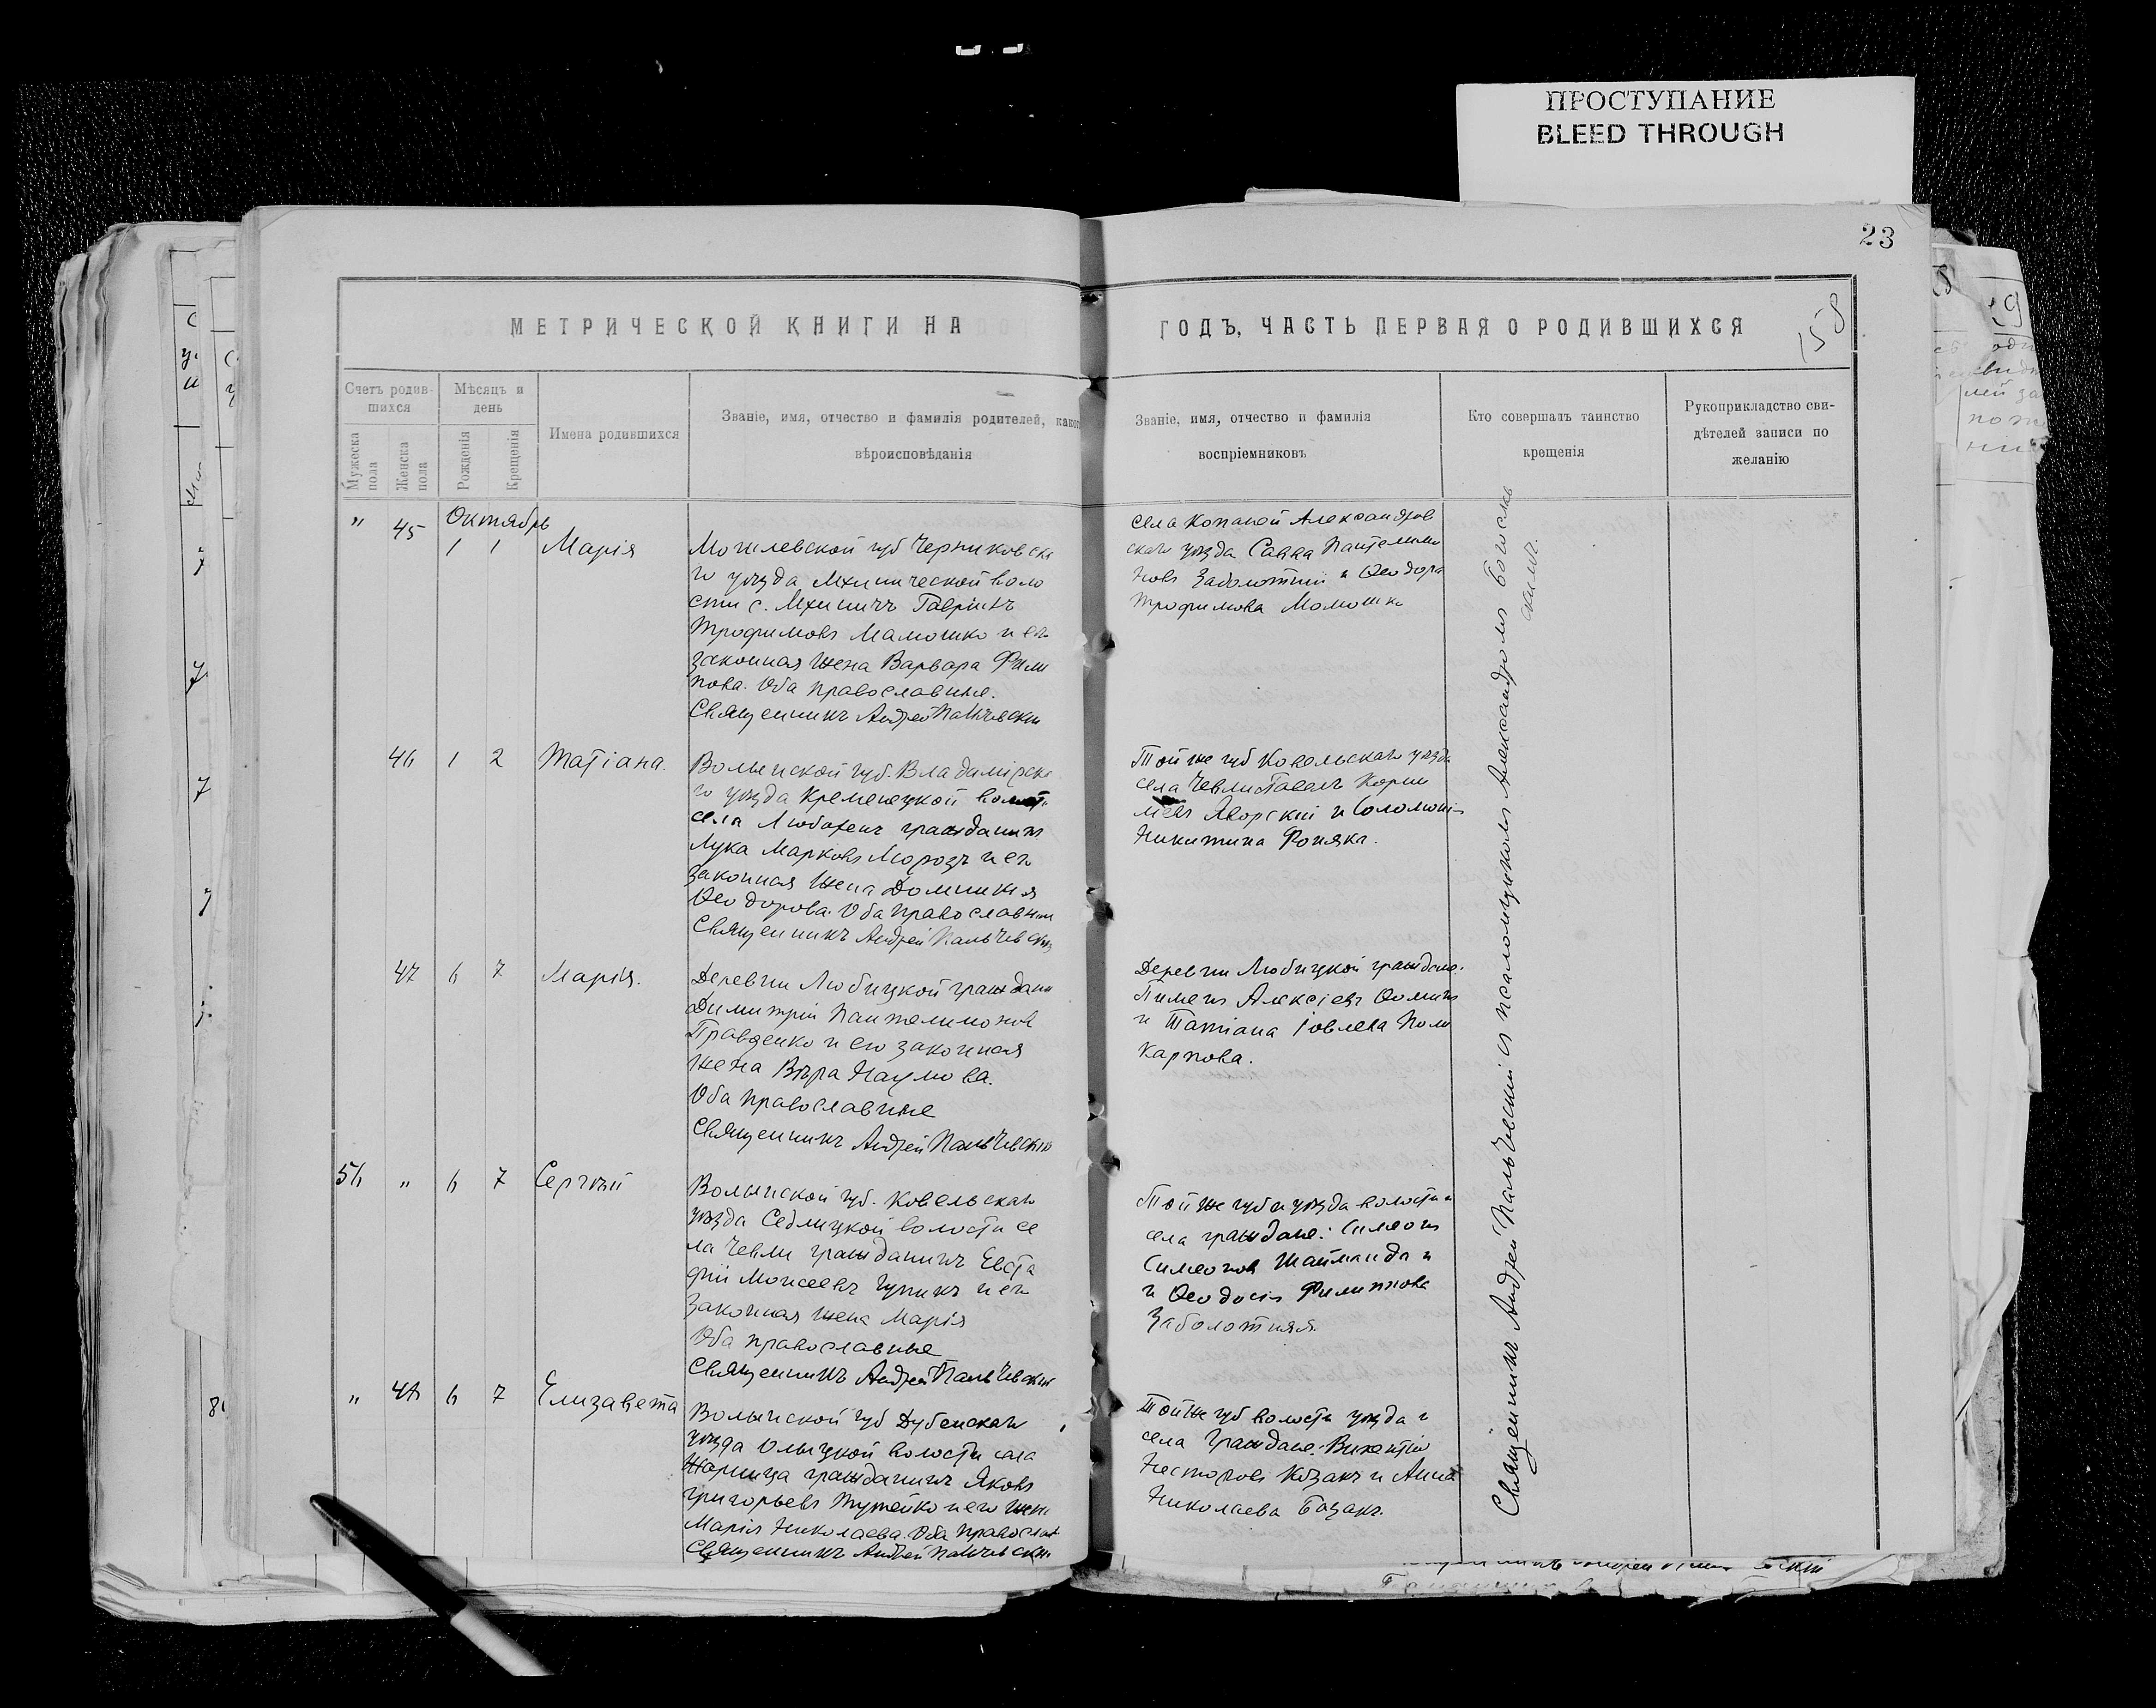 ПРОСТУПАНИЕ
BLEED THROUGH
23
158
МЕТРИЧЕСКОЙ КНИГИ НА
ГОДЪ, ЧАСТЬ ПЕРВАЯ О РОДИВШИХСЯ
Счетъ родив-
шихся
Мужеска
пола
Женска
пола
Мѣсяцъ и
день
Рожденія
Крещенія
Имена родившихся
Званіе, имя, отчество и фамилія родителей, како
вѣроисповѣданія
Званіе, имя, отчество и фамилія
воспріемниковъ
Кто совершалъ таинство
крещенія
Рукоприкладство сви-
дѣтелей записи по
желанію
Октябрь
" 45 1 1 Марія
Могилевской губ Чериковска
го уѣзда Мхиничской воло
сти с. Мхиничъ Гавріилъ
Трофимовъ Мамошко и его
законная жена Варвара Фили
пова. Оба православные.
Священникъ Андрей Пальчевскій
села Копаной Александров
скаго уѣзда Савва Пантелимо
новъ Заболотній и Ѳеодора
Трофимова Момошко
46 1 2 Татіана.
Волынской губ. Владимірска
го уѣзда Кременецкой волости
села Любохенъ гражданинъ
Лука Марковъ Морозъ и его
законная жена Домникія
Ѳеодорова. Оба православные
Священникъ Андрей Пальчевскій
Той же губ Ковельскаго уѣзда
села Чевли Павелъ Корни
ліевъ Яворскій и Соломоні
Никитина Фоняка.
47 6 7 Марія.
Деревни Любицкой граждани
Димитрій Пантелимонов
Правденко и его законная
жена Вѣра Наумова.
Оба православные
Священникъ Андрей Пальчевскій
Деревни Любицкой граждане.
Пименъ Алексіевъ Ѳоминъ
и Татіана Іовлева Поли
карпова.
56 " 6 7 Сергѣй
Волынской губ. Ковельскаго
уѣзда Седлицкой волости се
ла Чевли гражданинъ Евста
фій Моисеевъ и его
законная жена Марія
Оба православные
Священникъ Андрей Пальчевскій
Той же губ и уѣзда волости и
села граждане: Симеонъ
Симеонов Шайманда и
и Ѳеодосія Филиппова
Заболотняя.
" 48 6 7 Елизавета
Волынской губ Дубенскаго
уѣзда Олыцкой волости села
гражданинъ Яковъ
Григорьевъ и его жена
Марія Николаева. Оба православ
Священникъ Андрей Пальчевскій
Той же губ волости уѣзда и
села граждане: Викентій
Несторовъ Козакъ и Анна
Николаева Базакъ.
Священникъ Андрей Пальчевскій съ псаломщикомъ Александромъ Богослав
скимъ.